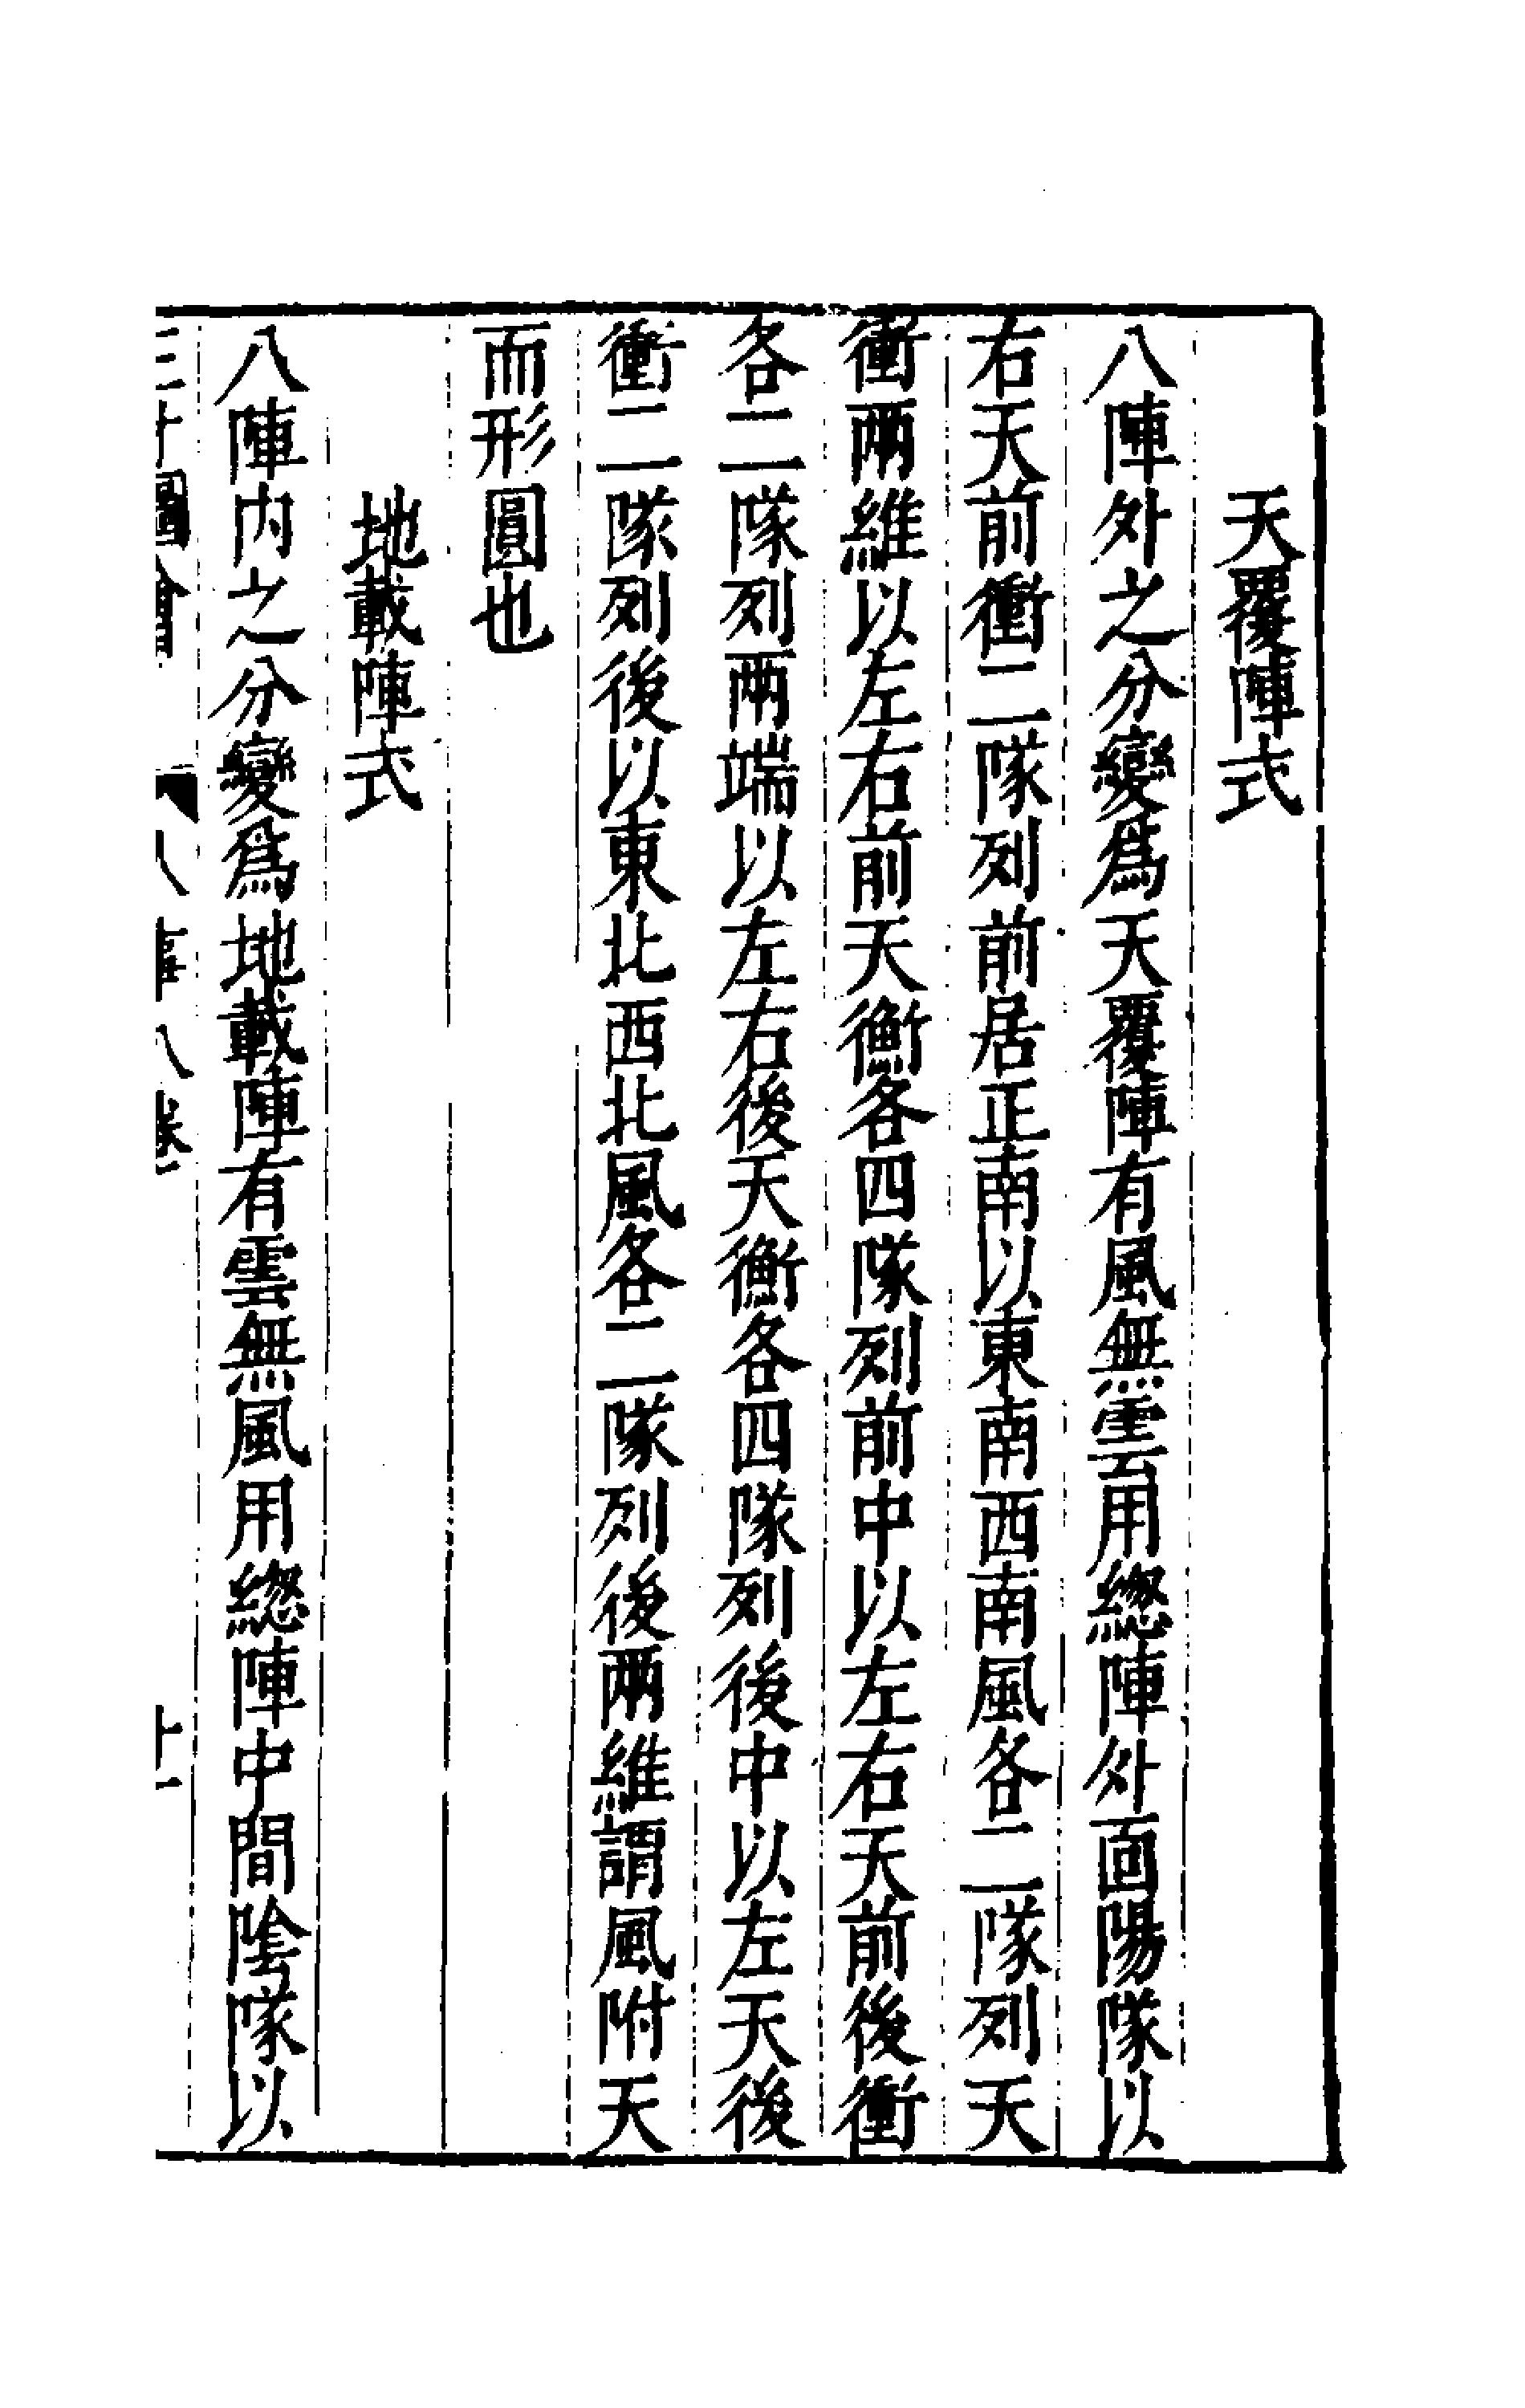 天覆陣式
八陣外之分變爲天覆陣有風無雲用緫陣外面陽隊以
右天前衝二隊列前居正南以東南西南風各二隊列天
衝兩維以左右前天衡各四隊列前中以左右天前後衝
各二隊列兩端以左右後天衡各四隊列後中以左天後
衝二隊列後以東北西北風各二隊列後兩維謂風附天
而形圓也
地載陣式
八陣内之分變爲地載陣有雲無風用緫陣中間陰隊以
三才圖會 人事八卷 十一